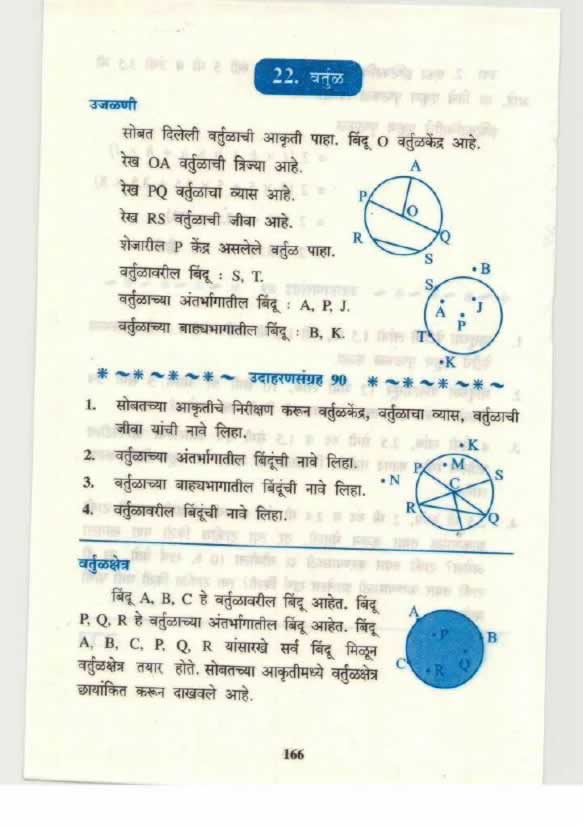 22. वर्तुळ
उजळणी
सोबत दिलेली वर्तुळाची आकृती पाहा. बिंदू O वर्तुळकेंद्र आहे.
रेख OA वर्तुळाची त्रिज्या आहे.
रेख PQ वर्तुळाचा व्यास आहे.
रेख RS वर्तुळाची जीवा आहे.
A
P
O
Q
R
S
शेजारील P केंद्र असलेले वर्तुळ पाहा.
वर्तुळावरील बिंदू : S, T.
वर्तुळाच्या अंतर्भागातील बिंदू : A, P, J.
वर्तुळाच्या बाह्यभागातील बिंदू : B, K.
B
S
J
A
P
T
K
उदाहरणसंग्रह 90
1. सोबतच्या आकृतीचे निरीक्षण करून वर्तुळकेंद्र, वर्तुळाचा व्यास, वर्तुळाची
जीवा यांची नावे लिहा.
2. वर्तुळाच्या अंतर्भागातील बिंदूंची नावे लिहा.
3. वर्तुळाच्या बाह्यभागातील बिंदूंची नावे लिहा.
4. वर्तुळावरील बिंदूंची नावे लिहा.
K
P
M
S
N
C
R
Q
वर्तुळक्षेत्र
बिंदू A, B, C हे वर्तुळावरील बिंदू आहेत. बिंदू
P, Q, R हे वर्तुळाच्या अंतर्भागातील बिंदू आहेत. बिंदू
A, B, C, P, Q, R यांसारखे सर्व बिंदू मिळून
वर्तुळक्षेत्र तयार होते. सोबतच्या आकृतीमध्ये वर्तुळक्षेत्र
छायांकित करून दाखवले आहे.
A
P
B
C
Q
R
166